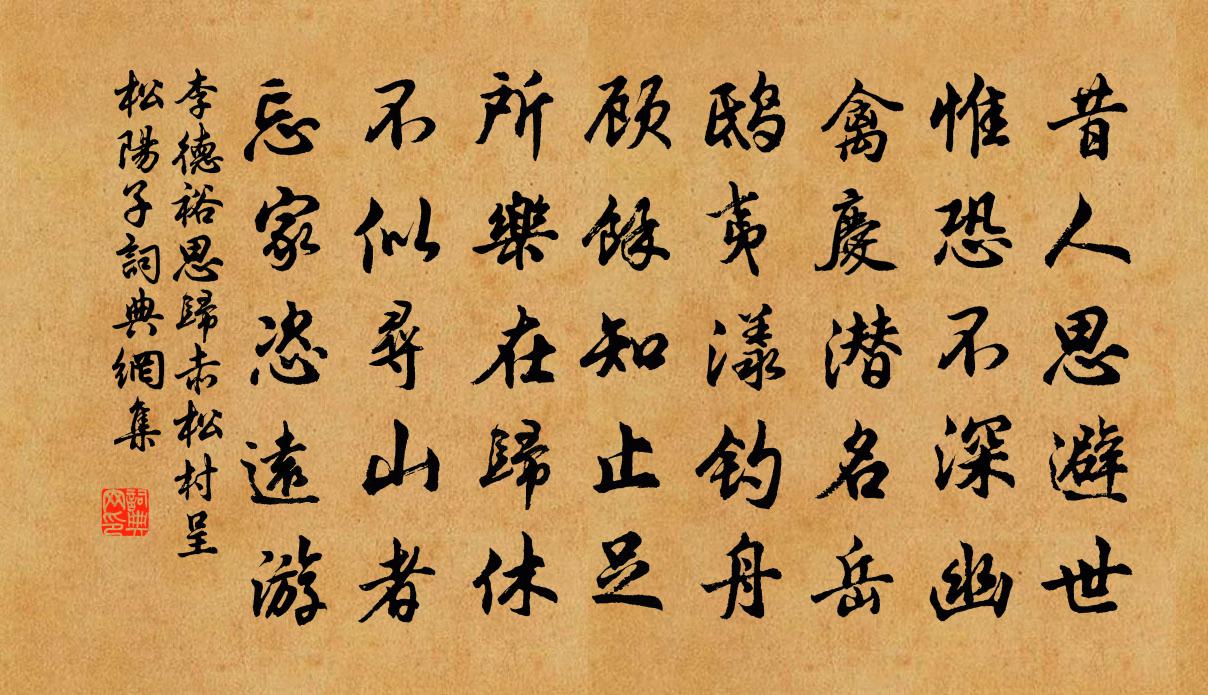 昔人思避世
惟恐不深幽
禽慶潜名岳
鴟夷漾钓舟
顾餘知止足
所樂在歸休
不似尋山者
忘家恣遠游
李德裕思歸赤松村呈
松陽子詞典網集
詞典
网印